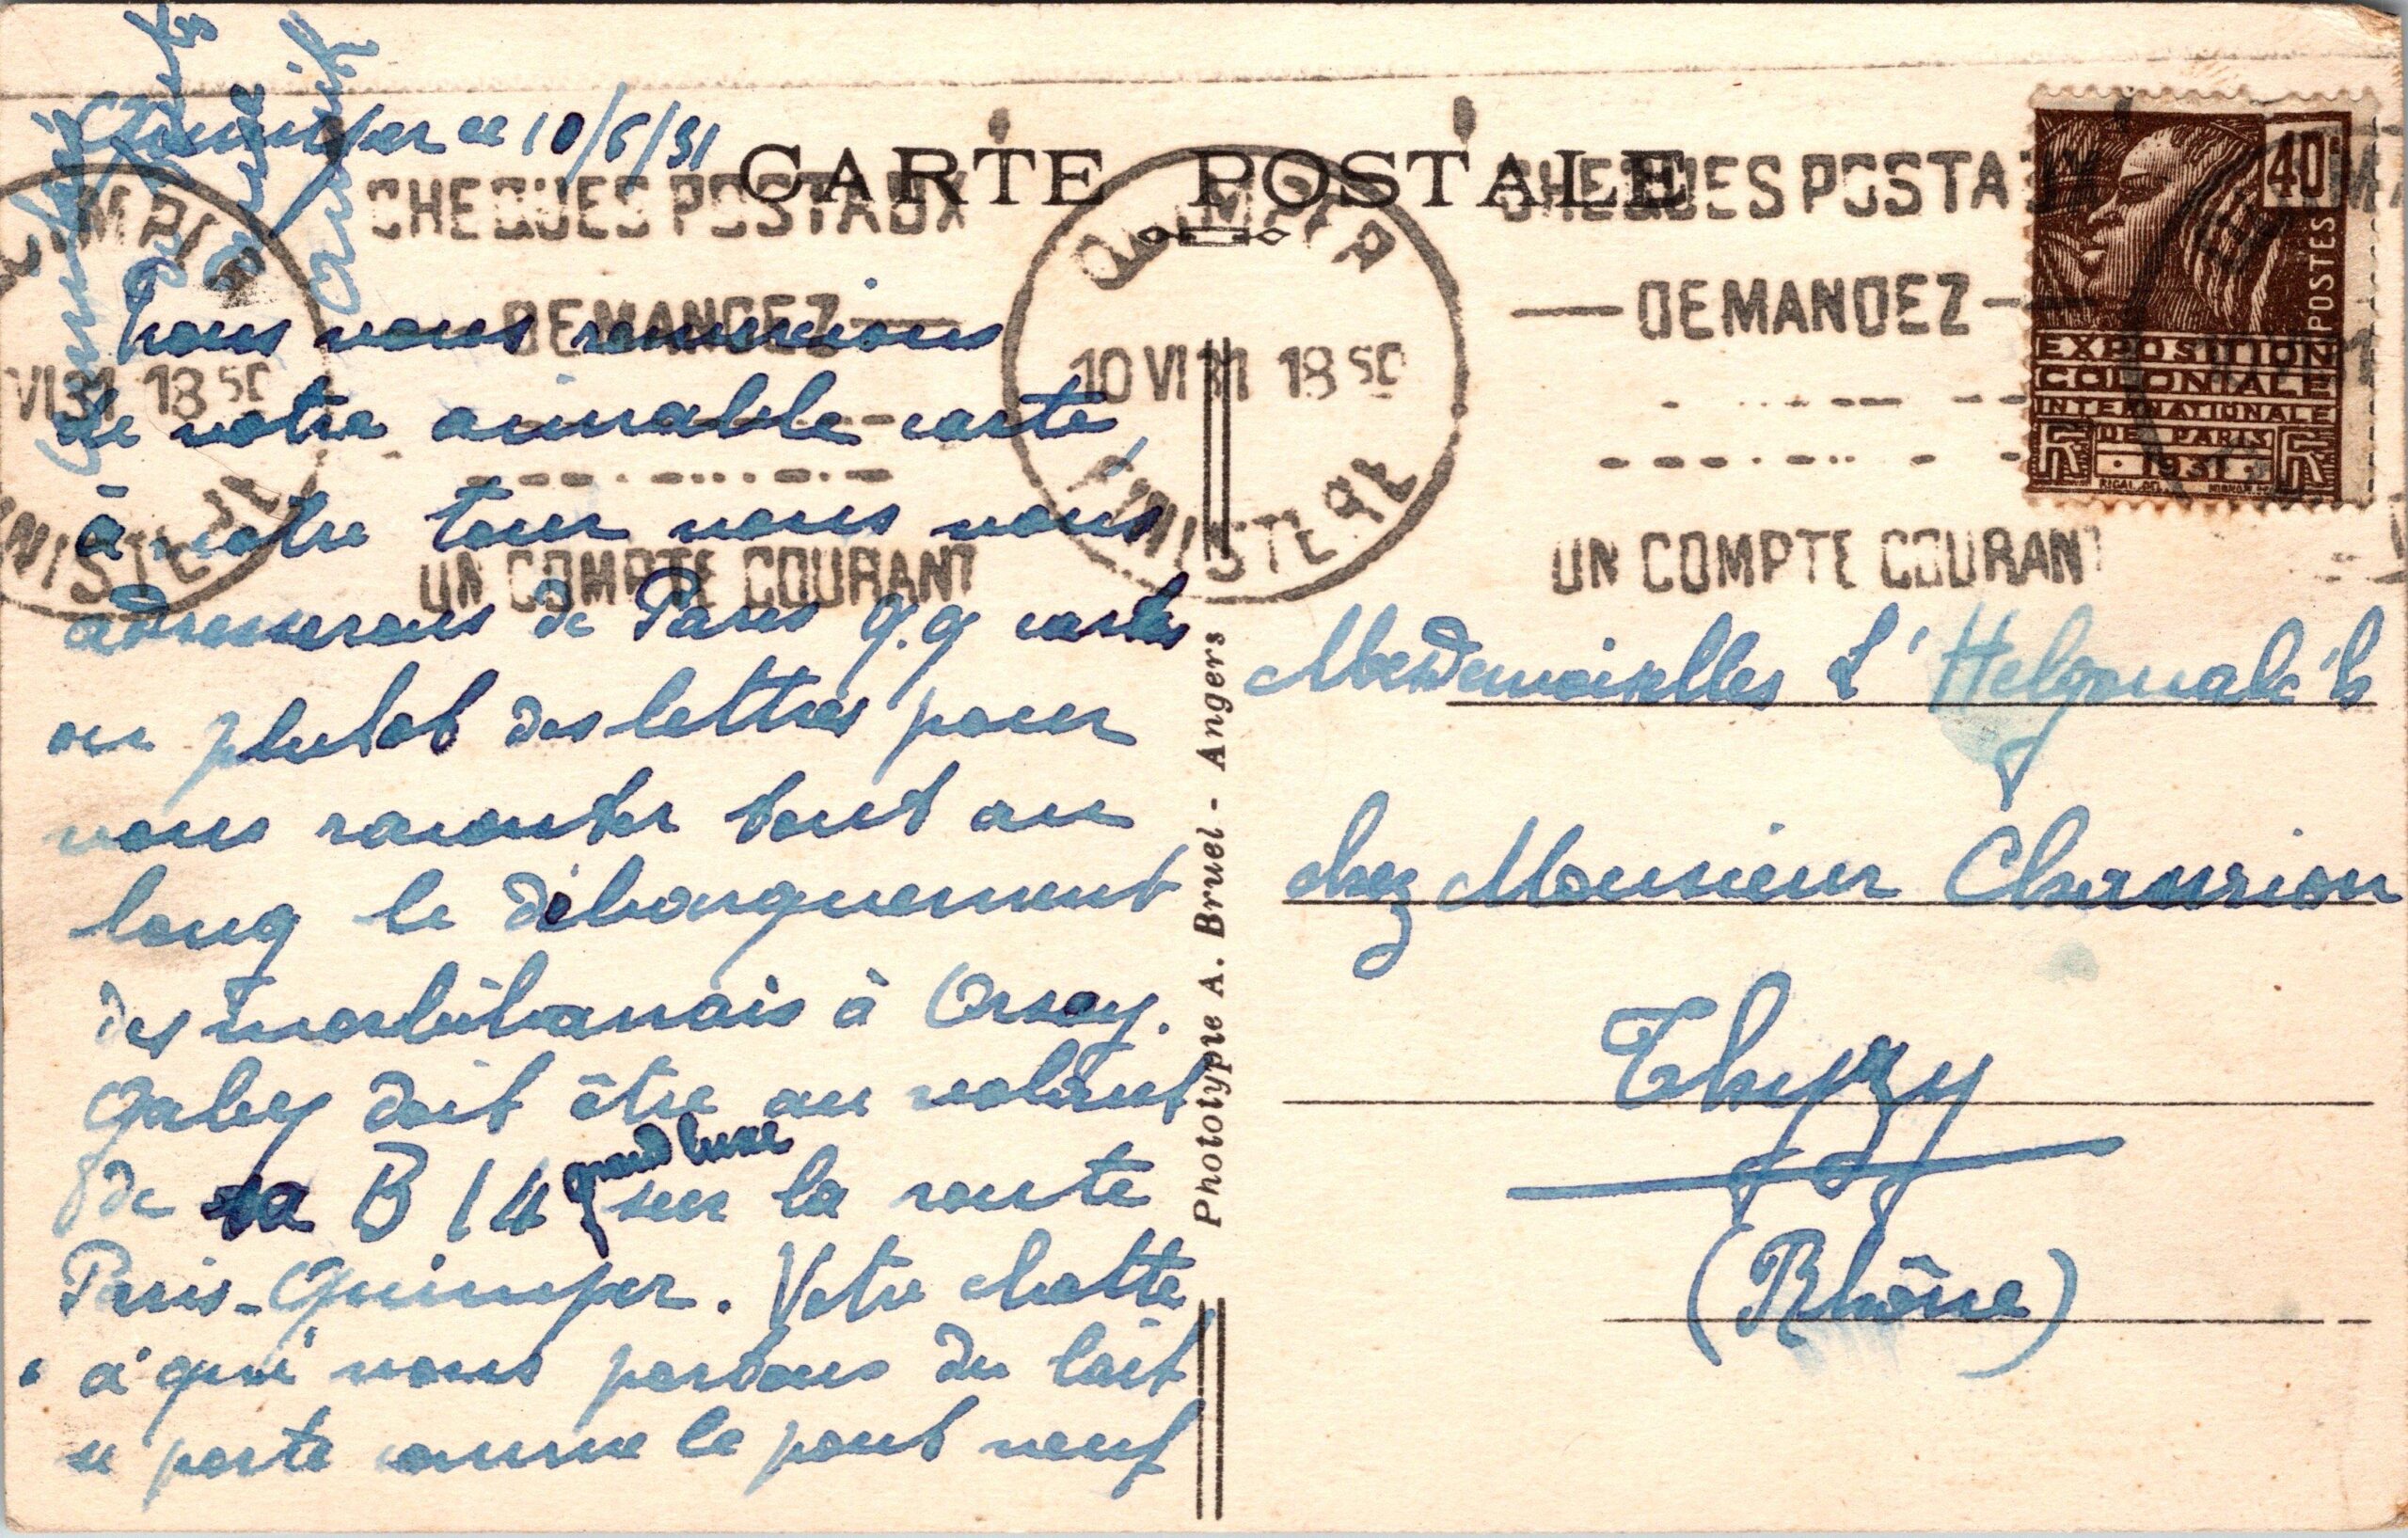 Quimper le 10/6/31
CARTE POSTALE
QUIMPER
VI 31 18 50
FINISTERE
CHEQUES POSTAUX
DEMANDEZ
UN COMPTE COURANT
QUIMPER
10 VI 31 18 50
FINISTERE
CHEQUES POSTAUX
DEMANDEZ
UN COMPTE COURANT
40
POSTES
EXPOSITION
COLONIALE
INTERNATIONALE
DE PARIS
1931
RF
Nous vous remercions
de votre aimable carte,
à notre tour nous vous
adresserons de Paris q.q cartes
ou plutot des lettres pour
vous raconter tout au
long le débarquement
des morbihanais à Orsay.
Gaby doit être au volant
de sa B 14 grand luxe sur la route
Paris-Quimper. Votre chatte
à qui nous portons du lait
se porte comme le pont neuf
Phototypie A. Bruel - Angers
Mesdemoiselles L'Helgoualc'h
chez Monsieur Chavrion
Thyzy
(Rhône)